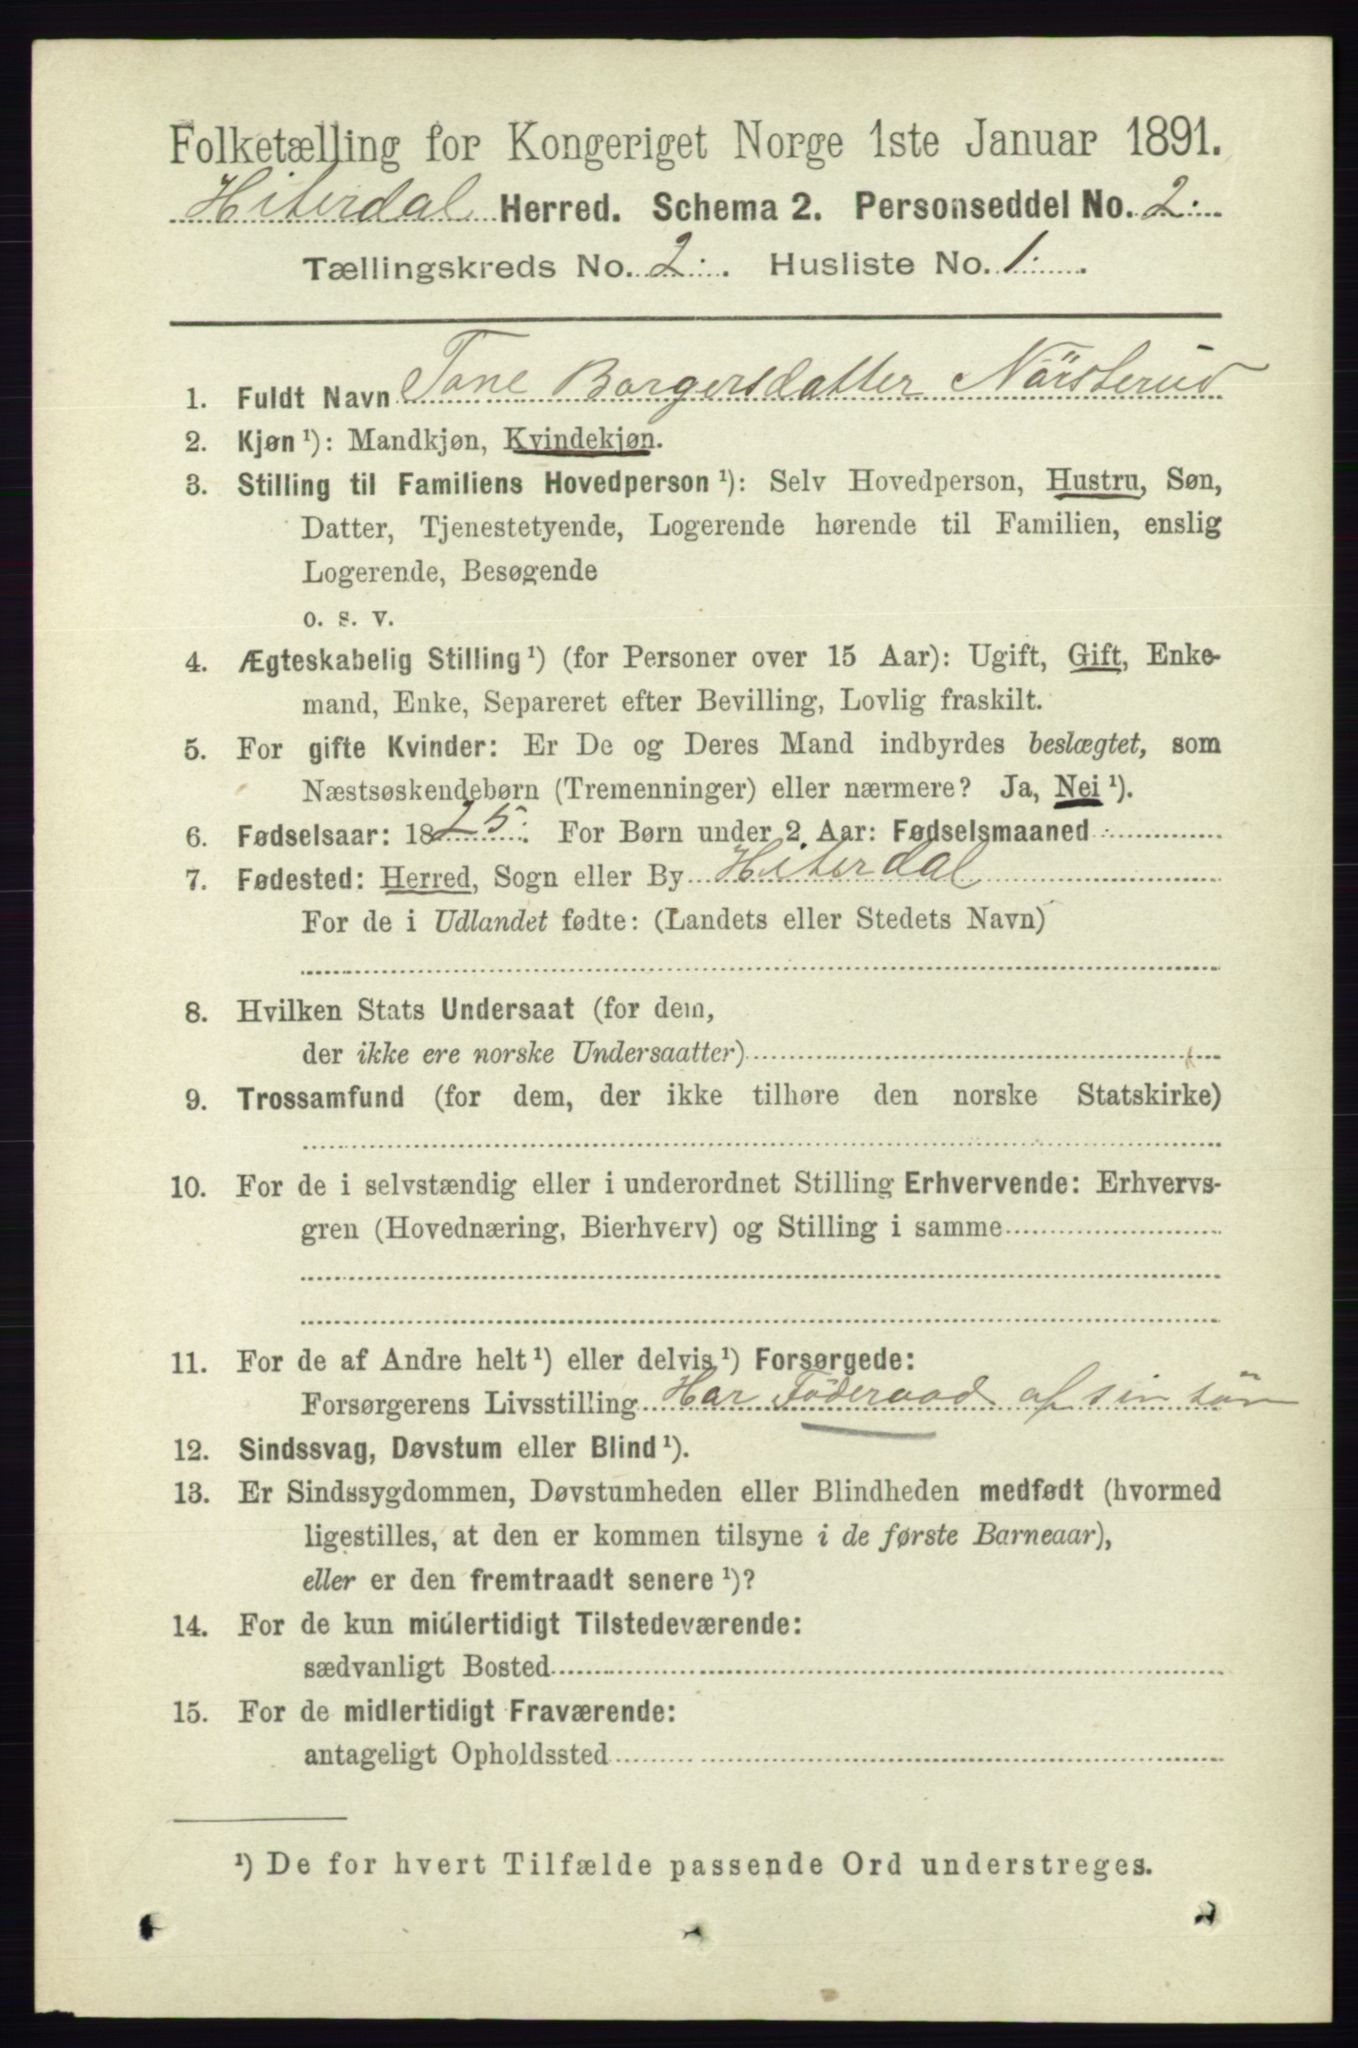 Folketælling for Kongeriget Norge 1ste Januar 1891.
Hiterdal Herred. Schema 2. Personseddel No. 2.
Tællingskreds No. 2. Husliste No. 1.
1. Fuldt Navn Tone Borgersdatter Nörsterud
2. Kjøn ¹): Mandkjøn, Kvindekjøn.
3. Stilling til Familiens Hovedperson ¹): Selv Hovedperson, Hustru, Søn,
Datter, Tjenestetyende, Logerende hørende til Familien, enslig
Logerende, Besøgende
o. s. v.
4. Ægteskabelig Stilling ¹) (for Personer over 15 Aar): Ugift, Gift, Enke-
mand, Enke, Separeret efter Bevilling, Lovlig fraskilt.
5. For gifte Kvinder: Er De og Deres Mand indbyrdes beslægtet, som
Næstsøskendebørn (Tremenninger) eller nærmere? Ja, Nei ¹).
6. Fødselsaar: 1825. For Børn under 2 Aar: Fødselsmaaned
7. Fødested: Herred, Sogn eller By Hiterdal
For de i Udlandet fødte: (Landets eller Stedets Navn)
8. Hvilken Stats Undersaat (for dem,
der ikke ere norske Undersaatter)
9. Trossamfund (for dem, der ikke tilhøre den norske Statskirke)
10. For de i selvstændig eller i underordnet Stilling Erhvervende: Erhvervs-
gren (Hovednæring, Bierhverv) og Stilling i samme
11. For de af Andre helt ¹) eller delvis ¹) Forsørgede:
Forsørgerens Livsstilling Har Föderaad af sin sön
12. Sindssvag, Døvstum eller Blind ¹).
13. Er Sindssygdommen, Døvstumheden eller Blindheden medfødt (hvormed
ligestilles, at den er kommen tilsyne i de første Barneaar),
eller er den fremtraadt senere ¹)?
14. For de kun midlertidigt Tilstedeværende:
sædvanligt Bosted
15. For de midlertidigt Fraværende:
antageligt Opholdssted
¹) De for hvert Tilfælde passende Ord understreges.